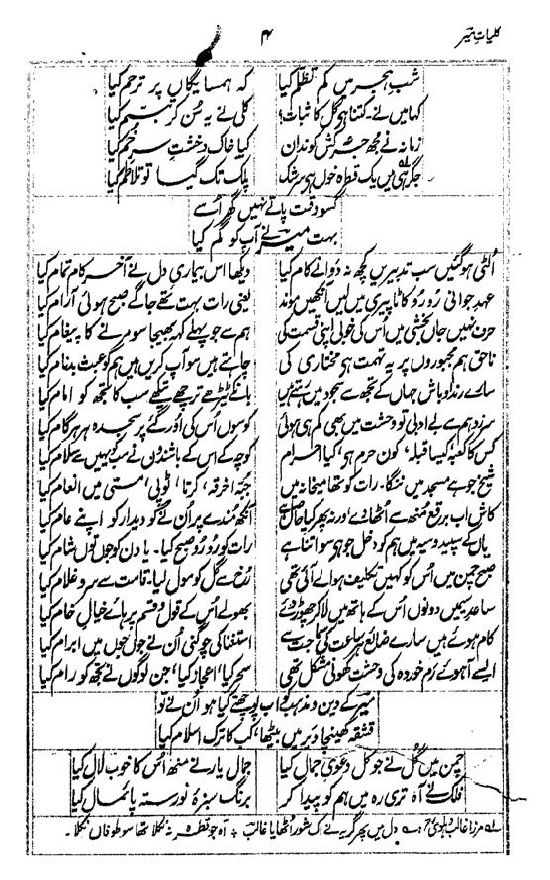 کلیاتِ میر
۴
شب ہجر میں کم تظلّم کیا کہ ہمسائگاں پر ترحم کیا
کہا میں نے۔ کتنا ہے گل کا ثبات؟ کلی نے یہ سُن کر تبسّم کیا
زمانہ نے مجھ جرعہ کش کو ندان کیا خاک و خشتِ سرِ خُم کیا
جگر ہی میں یک قطرہ خوں ہے سرشک پلک تک گیا تو تلاطم کیا
کسو وقت پاتے نہیں گھر اُسے
بہت میرؔ نے آپ کو گم کیا
اُلٹی ہوگئیں سب تدبیریں کچھ نہ دوا نے کام کیا دیکھا اس بیماریِ دل نے آخر کام تمام کیا
عہدِ جوانی رو رو کاٹا پیری میں لیں آنکھیں موند یعنی رات بہت تھے جاگے صبح ہوئی آرام کیا
حرف نہیں جاں بخشی میں اُس کی خوبی اپنی قسمت کی ہم سے جو پہلے کہہ بھیجا سو مرنے کا پیغام کیا
ناحق ہم مجبوروں پر یہ تہمت ہے مختاری کی چاہتے ہیں سو آپ کریں ہیں ہم کو عبث بدنام کیا
سارے رند اوباش جہاں کے تجھ سے سجود میں رہتے ہیں بانکے ٹیڑھے ترچھے تیکھے سب کا تجھ کو امام کیا
سرزد ہم سے بے ادبی تو وحشت میں بھی کم ہی ہوئی کوسوں اُس کی اور گئے پر سجدہ ہر ہر گام کیا
کس کا کعبہ کیسا قبلہ، کون حرم ہے، کیا احرام کوچے کے اس کے باشندوں نے سب کو یہیں سے سلام کیا
شیخ جو ہے مسجد میں ننگا۔ رات کو تھا میخانہ میں جُبّہ، خرقہ، کرتا، ٹوپی، مستی میں انعام کیا
کاش اب برقع منھ سے اٹھا دے، ورنہ پھر کیا حاصل ہے آنکھ مُندے پر اُن نے گو دیدار کو اپنے عام کیا
یاں کے سپید و سیہ میں ہم کو دخل جو ہے سو اتنا ہے رات کو رو رو صبح کیا۔ یا دن کو جوں توں شام کیا
صبح چمن میں اُس کو کہیں تکلیفِ ہوا لے آئی تھی رُخ سے گل کو مول لیا۔ قامت سے سرو غلام کیا
ساعدِ سیمیں دونوں اُس کے ہاتھ میں لا کر چھوڑ دیے بھولے اُس کے قول و قسم پر ہائے خیالِ خام کیا
کام ہوئے ہیں سارے ضائع ہر ساعت کی سماجت سے استغنا کی چوگنی اُن نے جوں جوں میں ابرام کیا
ایسے آہوئے رم خوردہ کی وحشت کھونی مشکل تھی سحر کیا، اعجاز کیا، جن لوگوں نے تجھ کو رام کیا
میرؔ کے دین و مذہب کو اب پوچھتے کیا ہو اُن نے تو
قشقہ کھینچا دَیر میں بیٹھا، کب کا ترک اسلام کیا
چمن میں گُل نے جو کل دعویِ جمال کیا جمالِ یار نے منھ اُس کا خوب لال کیا
فلک نے آہ تری رہ میں ہم کو پیدا کر برنگِ سبزۂ نورستہ پائمال کیا
لے مرزا غالب دہلوی دل میں پھر گریہ نے اک شور اٹھایا غالبؔ آہ جو قطرہ نہ نکلا تھا سو طوفاں نکلا۔